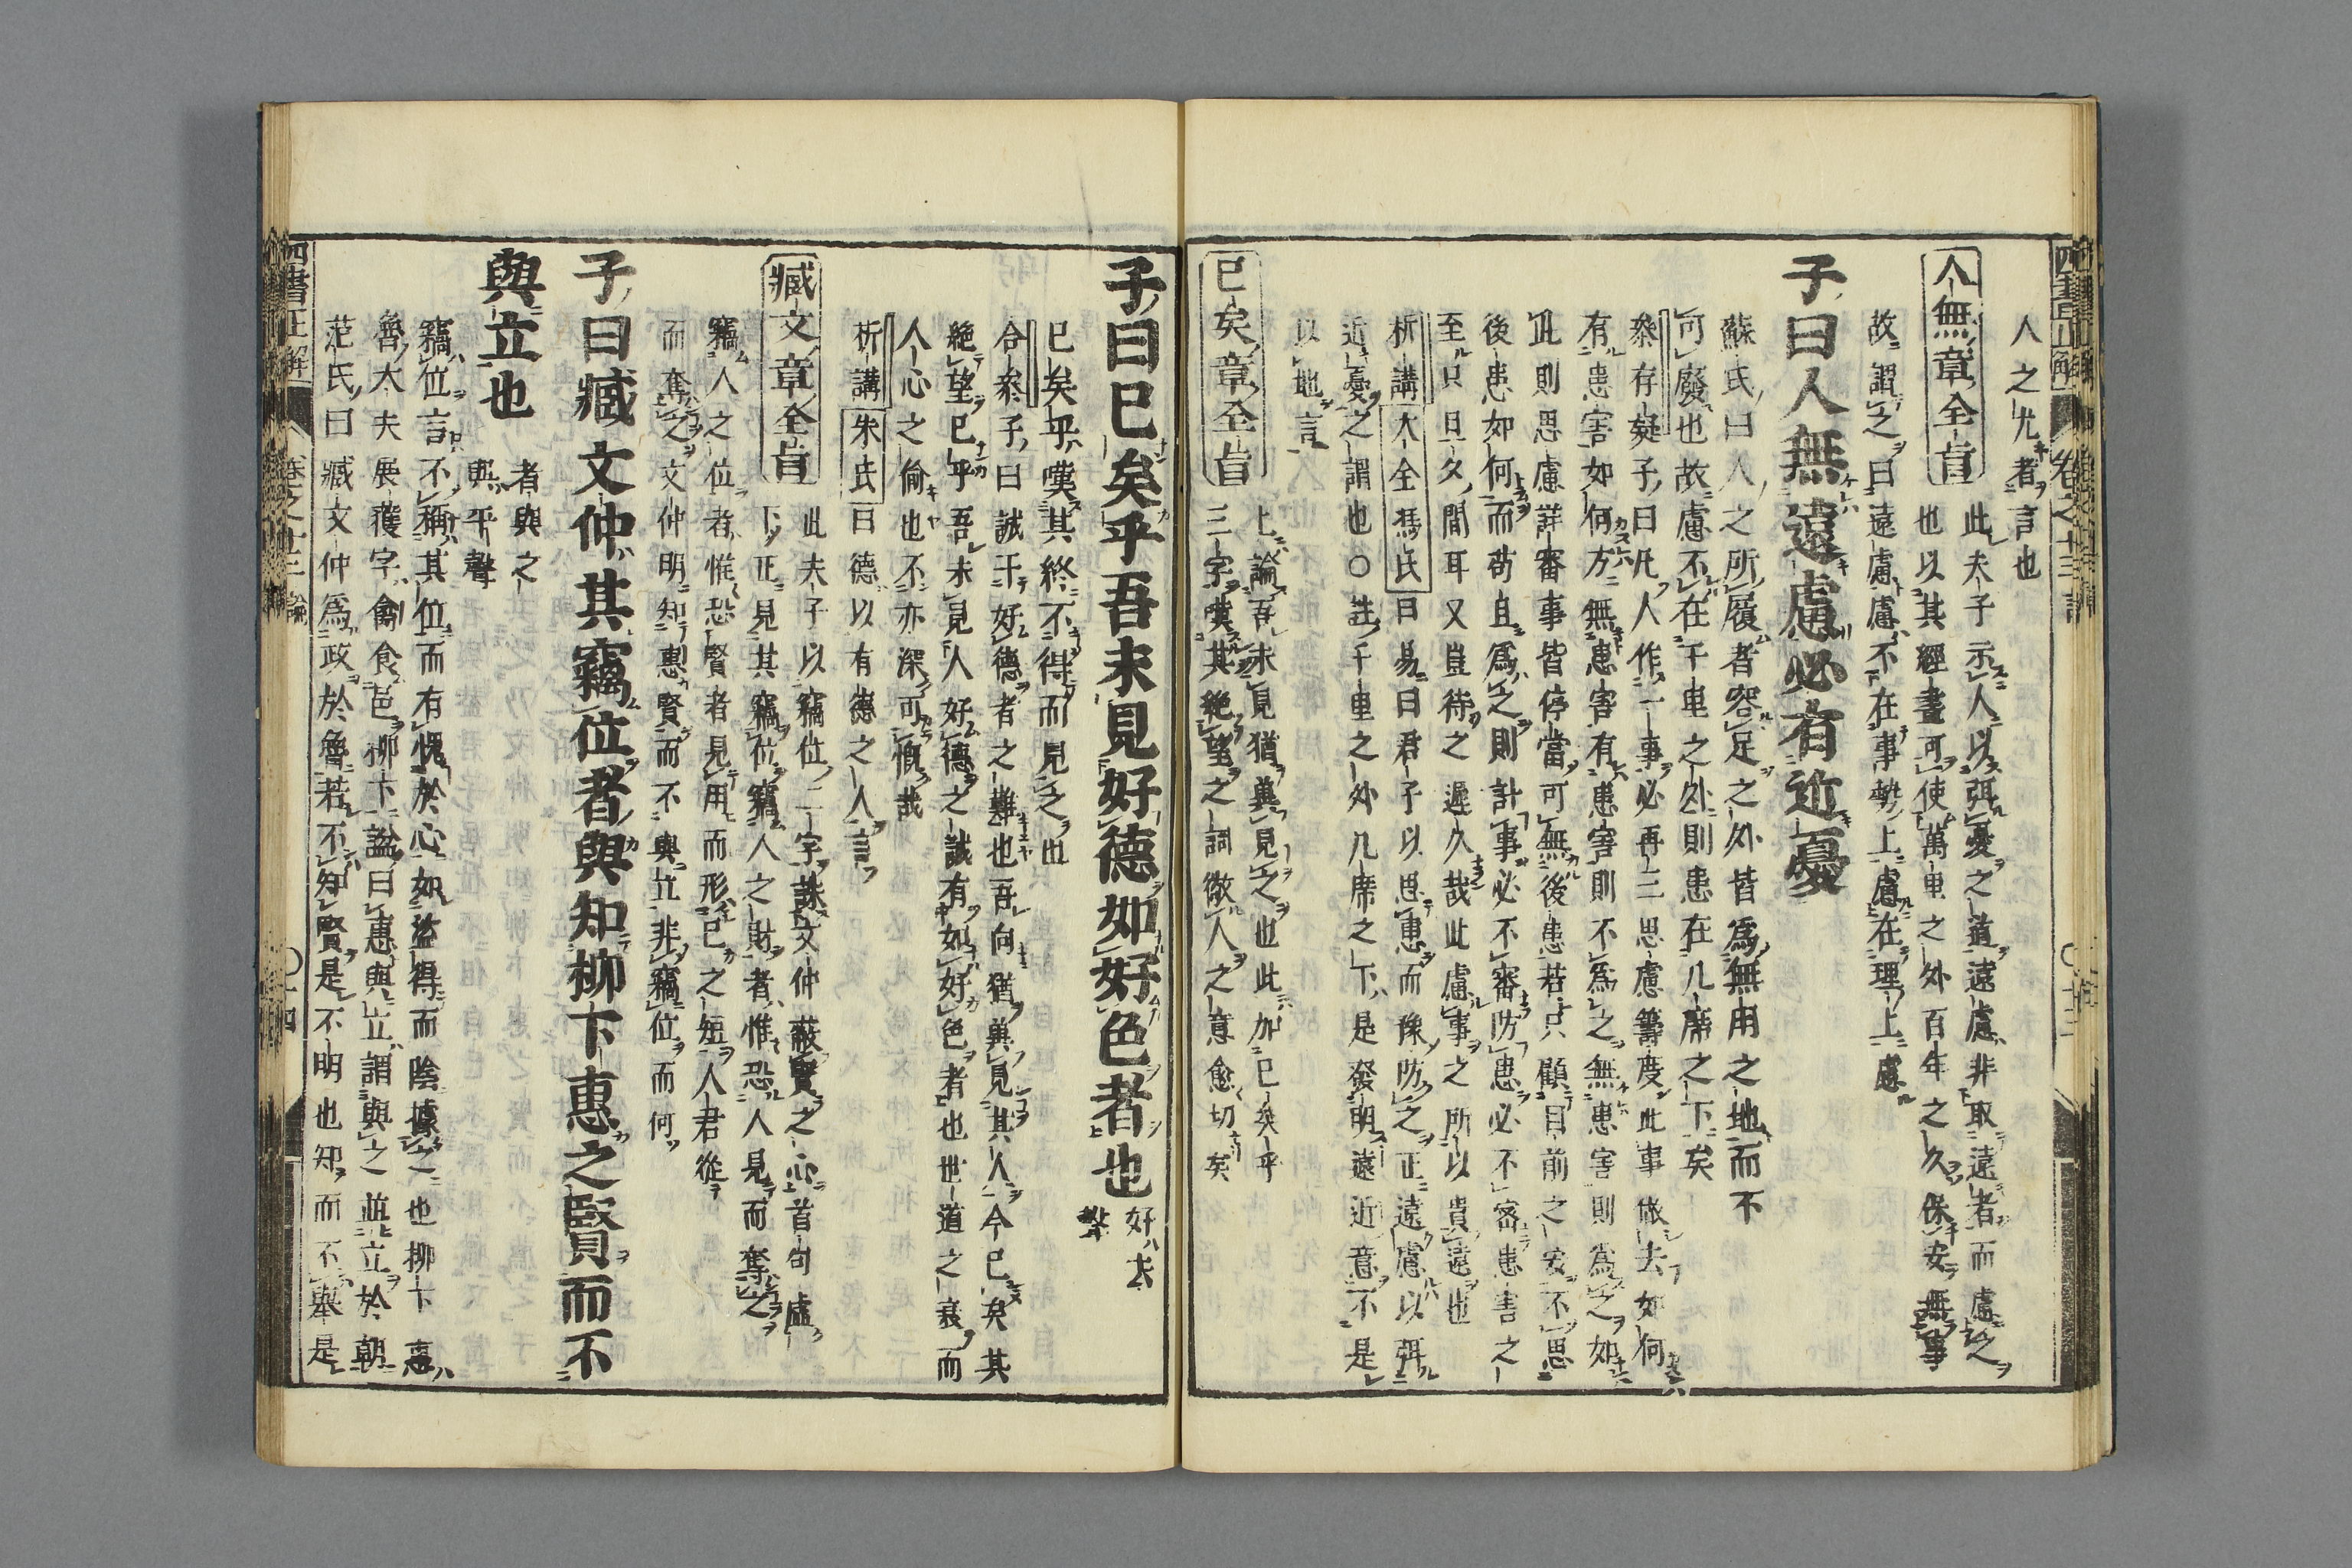 人之尤者言也
人無章全旨
此夫子示人以弭憂之道遠慮非取遠者而慮之
也以其經畫可使萬里之外百年之久保安無事
故謂之曰遠慮慮不在事勢上慮在理上慮
子曰人無遠慮必有近憂
蘇氏曰人之所履者容足之外皆為無用之地而不
可廢也故慮不在千里之外則患在几席之下矣
叅存疑子曰凡人作一事必再三思慮籌度此事做去如何
有患害如何方無患害有患害則不為之無患害則為之如
此則思慮詳審事皆停當可無後患若只顧目前之安不思
後患如何而苟且為之則計事必不審防患必不密患害之
至只旦夕間耳又豈待之遲久哉此慮事之所以貴遠也
析講大全馮氏曰易曰君子以思患而豫防之正遠慮以弭
近憂之謂也○註千里之外几席之下是發明遠近意不是
以地言
已矣章全旨
上論吾未見猶兾見之也此加已矣乎
三字嘆其絶望之詞儆人之意愈切矣
子曰已矣乎吾未見好德如好色者也
好去
聲
已矣乎嘆其終不得而見之也
合叅子曰誠于好德者之難也吾向猶兾見其人今已矣其
絶望已乎吾未見人好德之誠有如好色者也世道之衰而
人心之偷也不亦深可慨哉
析講朱氏曰德以有德之人言
臧文章全旨
此夫子以竊位二字誅文仲蔽賢之心首句虛
下正見其竊位竊人之財者惟恐人見而奪之
竊人之位者惟恐賢者見用而形已之短人君從
而奪之文仲明知惠賢而不與立非竊位而何
子曰臧文仲其竊位者與知柳下惠之賢而不
與立也
者與之
與平聲
竊位言不稱其位而有愧於心如盜得而陰據之也柳下惠
魯大夫展獲字禽食邑柳下謚曰惠與立謂與之並立於朝
范氏曰臧文仲為政於魯若不知賢是不明也知而不舉是
四書正解
卷之十三論